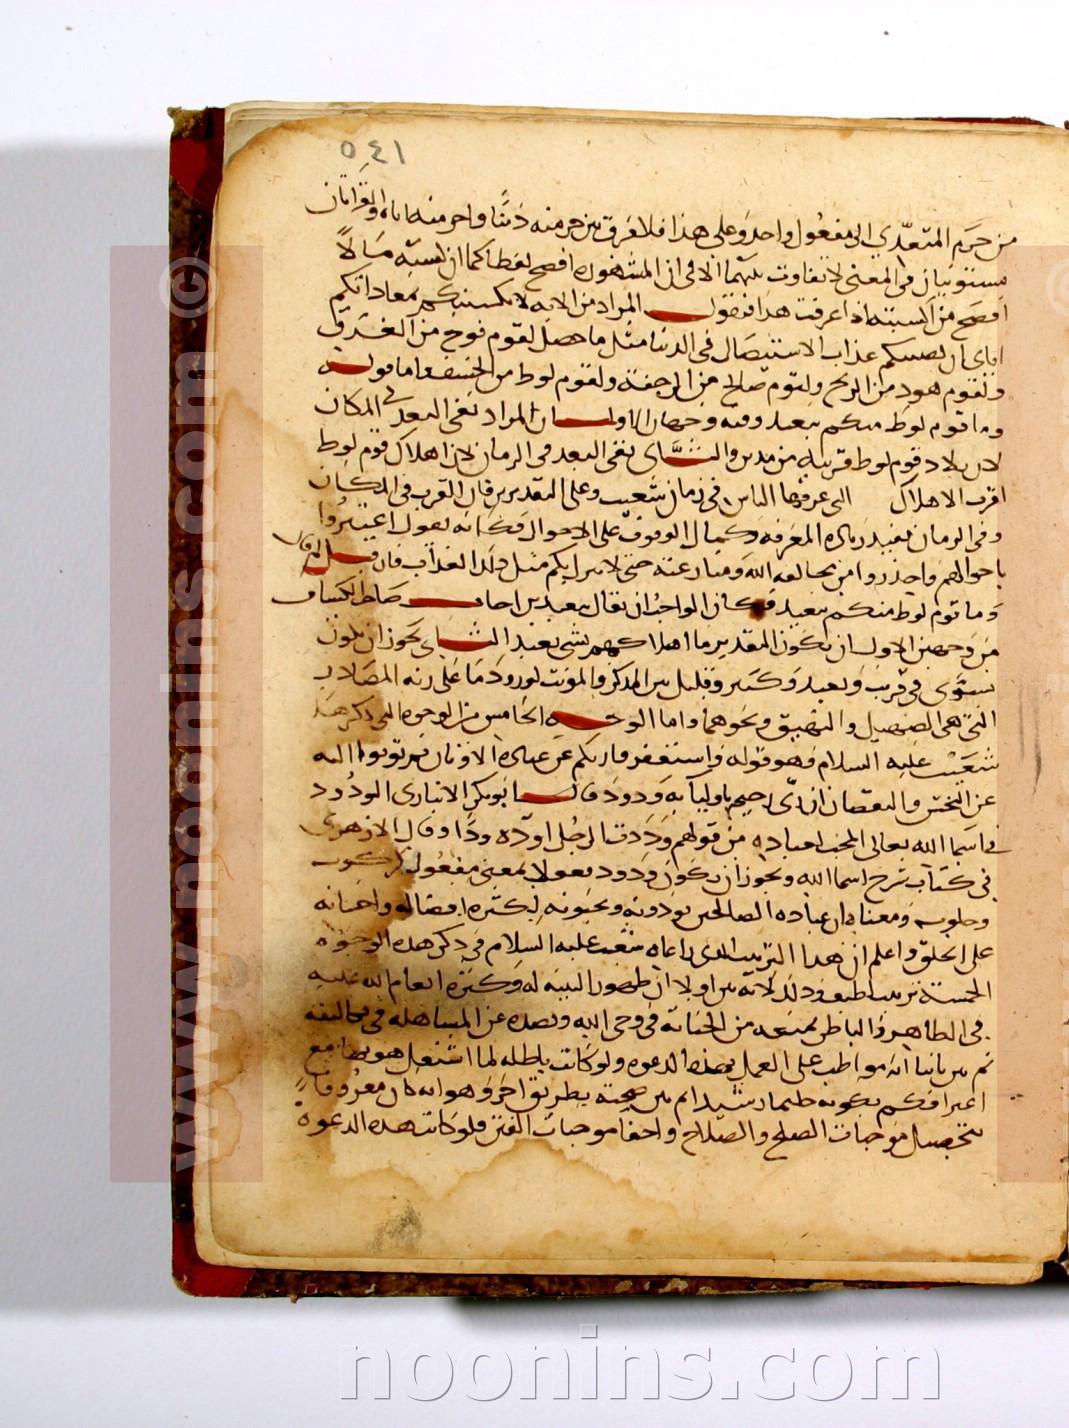 ٥٤١
من جرم المتعدي الى مفعول واحد وعلى هذا فلا فرق بين جرمته ذنبا واجرمته اياه والقراتان
مستويتان في المعنى لا تفاوت بينهما الا في ان المشهورة افصح لفظا كما ان كسبته مالا
افصح من اكسبته اذا عرفت هذا فنقول المراد من الاية لا تكسبنكم معاداتكم
اياي ان يصيبكم عذاب الاستيصال في الدنيا مثل ما حصل لقوم نوح من الغرق
ولقوم هود من الريح ولقوم صالح من الرجفة ولقوم لوط من الخسف واما قوله
وما قوم لوط منكم ببعيد وفيه وجهان الاول ان المراد نفي البعد في المكان
لان بلاد قوم لوط قريبة من مدين والثاني نفي البعد في الزمان لان اهلاك قوم لوط
اقرب الاهلاك التي عرفها الناس في زمان شعيب وعلى التقديرين فان القرب في المكان
وفي الزمان يفيد زيادة المعرفة وكمال الوقوف على الاحوال فكانه يقول اعتبروا
باحوالهم واحذروا من مخالفة الله ومنازعته حتى لا ينزل بكم مثل ذلك العذاب فان قيل لم قال
وما قوم لوط منكم ببعيد فكان الواجب ان يقال ببعيدين اجاب صاحب الكشاف
من وجهين الاول ان يكون التقدير ما اهلاكهم بشي بعيد الثاني يجوز ان يكون
يستوي في قريب وبعيد وكثير وقليل بين المذكر والمونث لورودها على زنة المصادر
التي هي الصهيل والنهيق ونحوهما واما الوجه الخامس من الوجوه التي ذكرها
شعيب عليه السلام فهو قوله واستغفروا ربكم عن عبادة الاوثان ثم توبوا اليه
عن البخس والنقصان ان ربي رحيم باوليايه ودود قال ابو بكر الانباري الودود
في اسما الله تعالى المحب لعباده من قولهم وددت الرجل اوده ودا وقال الازهري
في كتاب شرح اسما الله ويجوز ان يكون ودود فعولا بمعنى مفعول كركوب
وحلوب ومعناه ان عباده الصالحين يودونه ويحبونه لكثرة افضاله واحسانه
على الخلق واعلم ان هذا الترتيب الذي راعاه شعيب عليه السلام في ذكر هذه الوجوه
الخمسة ترتيب لطيف وذلك لانه بين اولا ان ظهور البينة له وكثرة انعام الله عليه
في الظاهر والباطن يمنعه من الخيانة في وحي الله ويصده عن المساهلة في تكاليفه
ثم بين ثانيا انه مواظب على العمل بهذه الدعوة ولو كانت باطلة لما اشتغل هو بها مع
اعترافكم بكونه حليما رشيدا ثم بين صحته بطريق اخر وهو انه كان معروفا
بتحصيل موجبات الصلح والصلاح واخفا موجبات الفتن فلو كانت هذه الدعوة
www.noonins.com ©
noonins.com